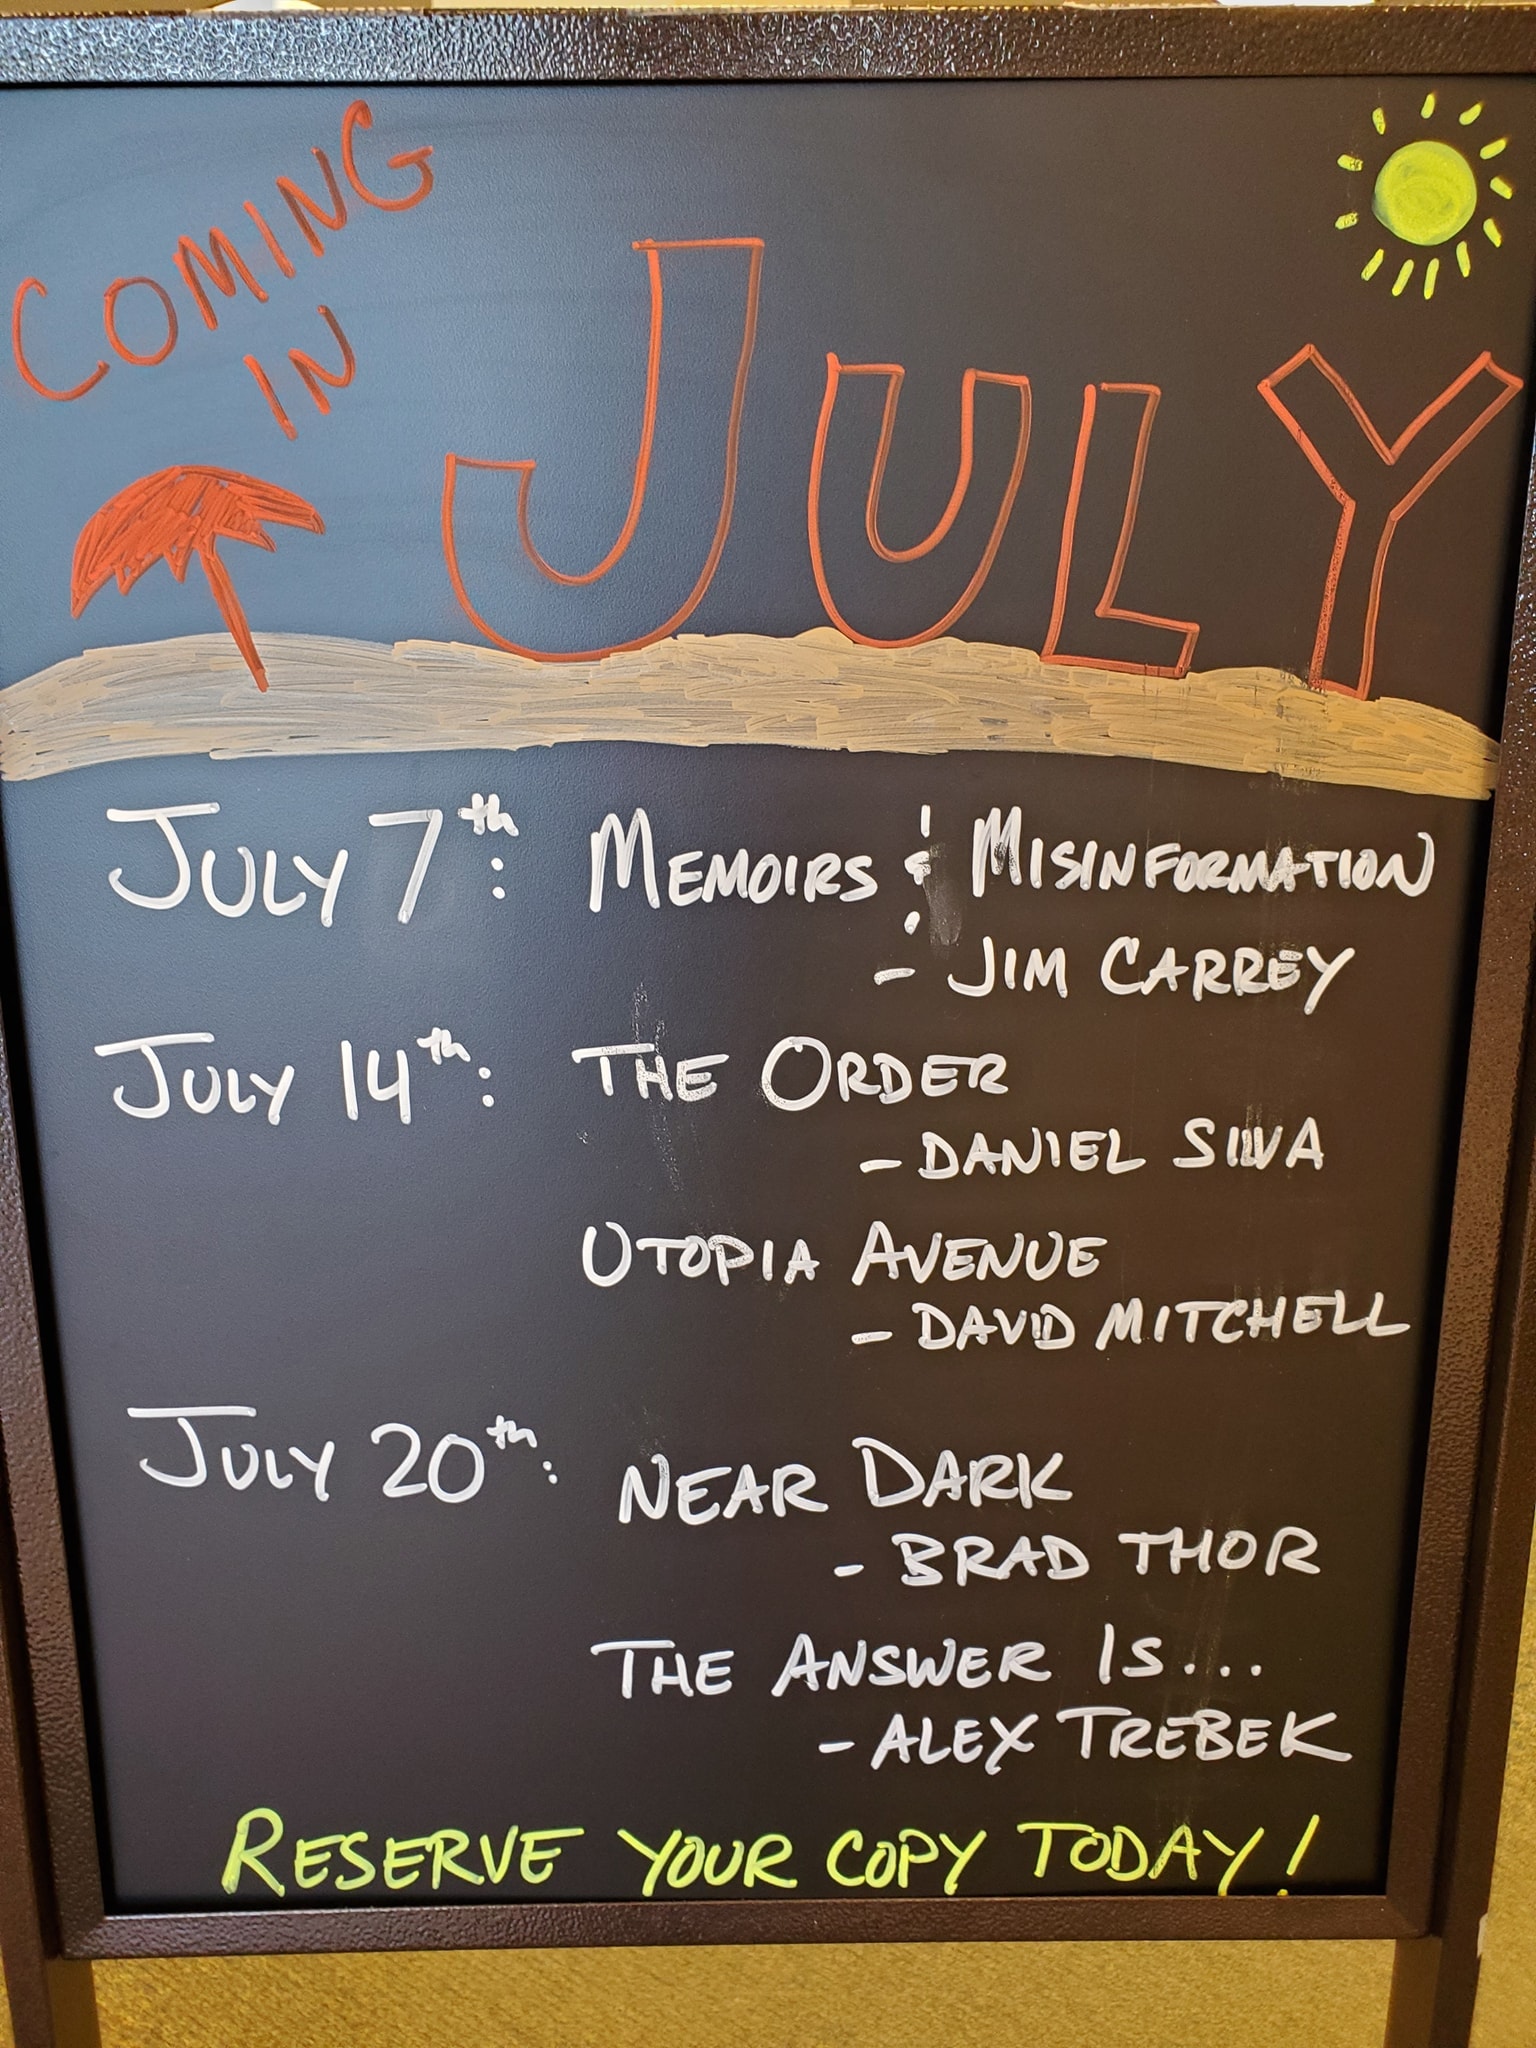 COMING
IN
JULY
JULY 7th: MEMOIRS & MISINFORMATION
- JIM CARREY
JULY 14th: THE ORDER
- DANIEL SILVA
UTOPIA AVENUE
- DAVID MITCHELL
JULY 20th: NEAR DARK
- BRAD THOR
THE ANSWER IS...
- ALEX TREBEK
RESERVE YOUR COPY TODAY!